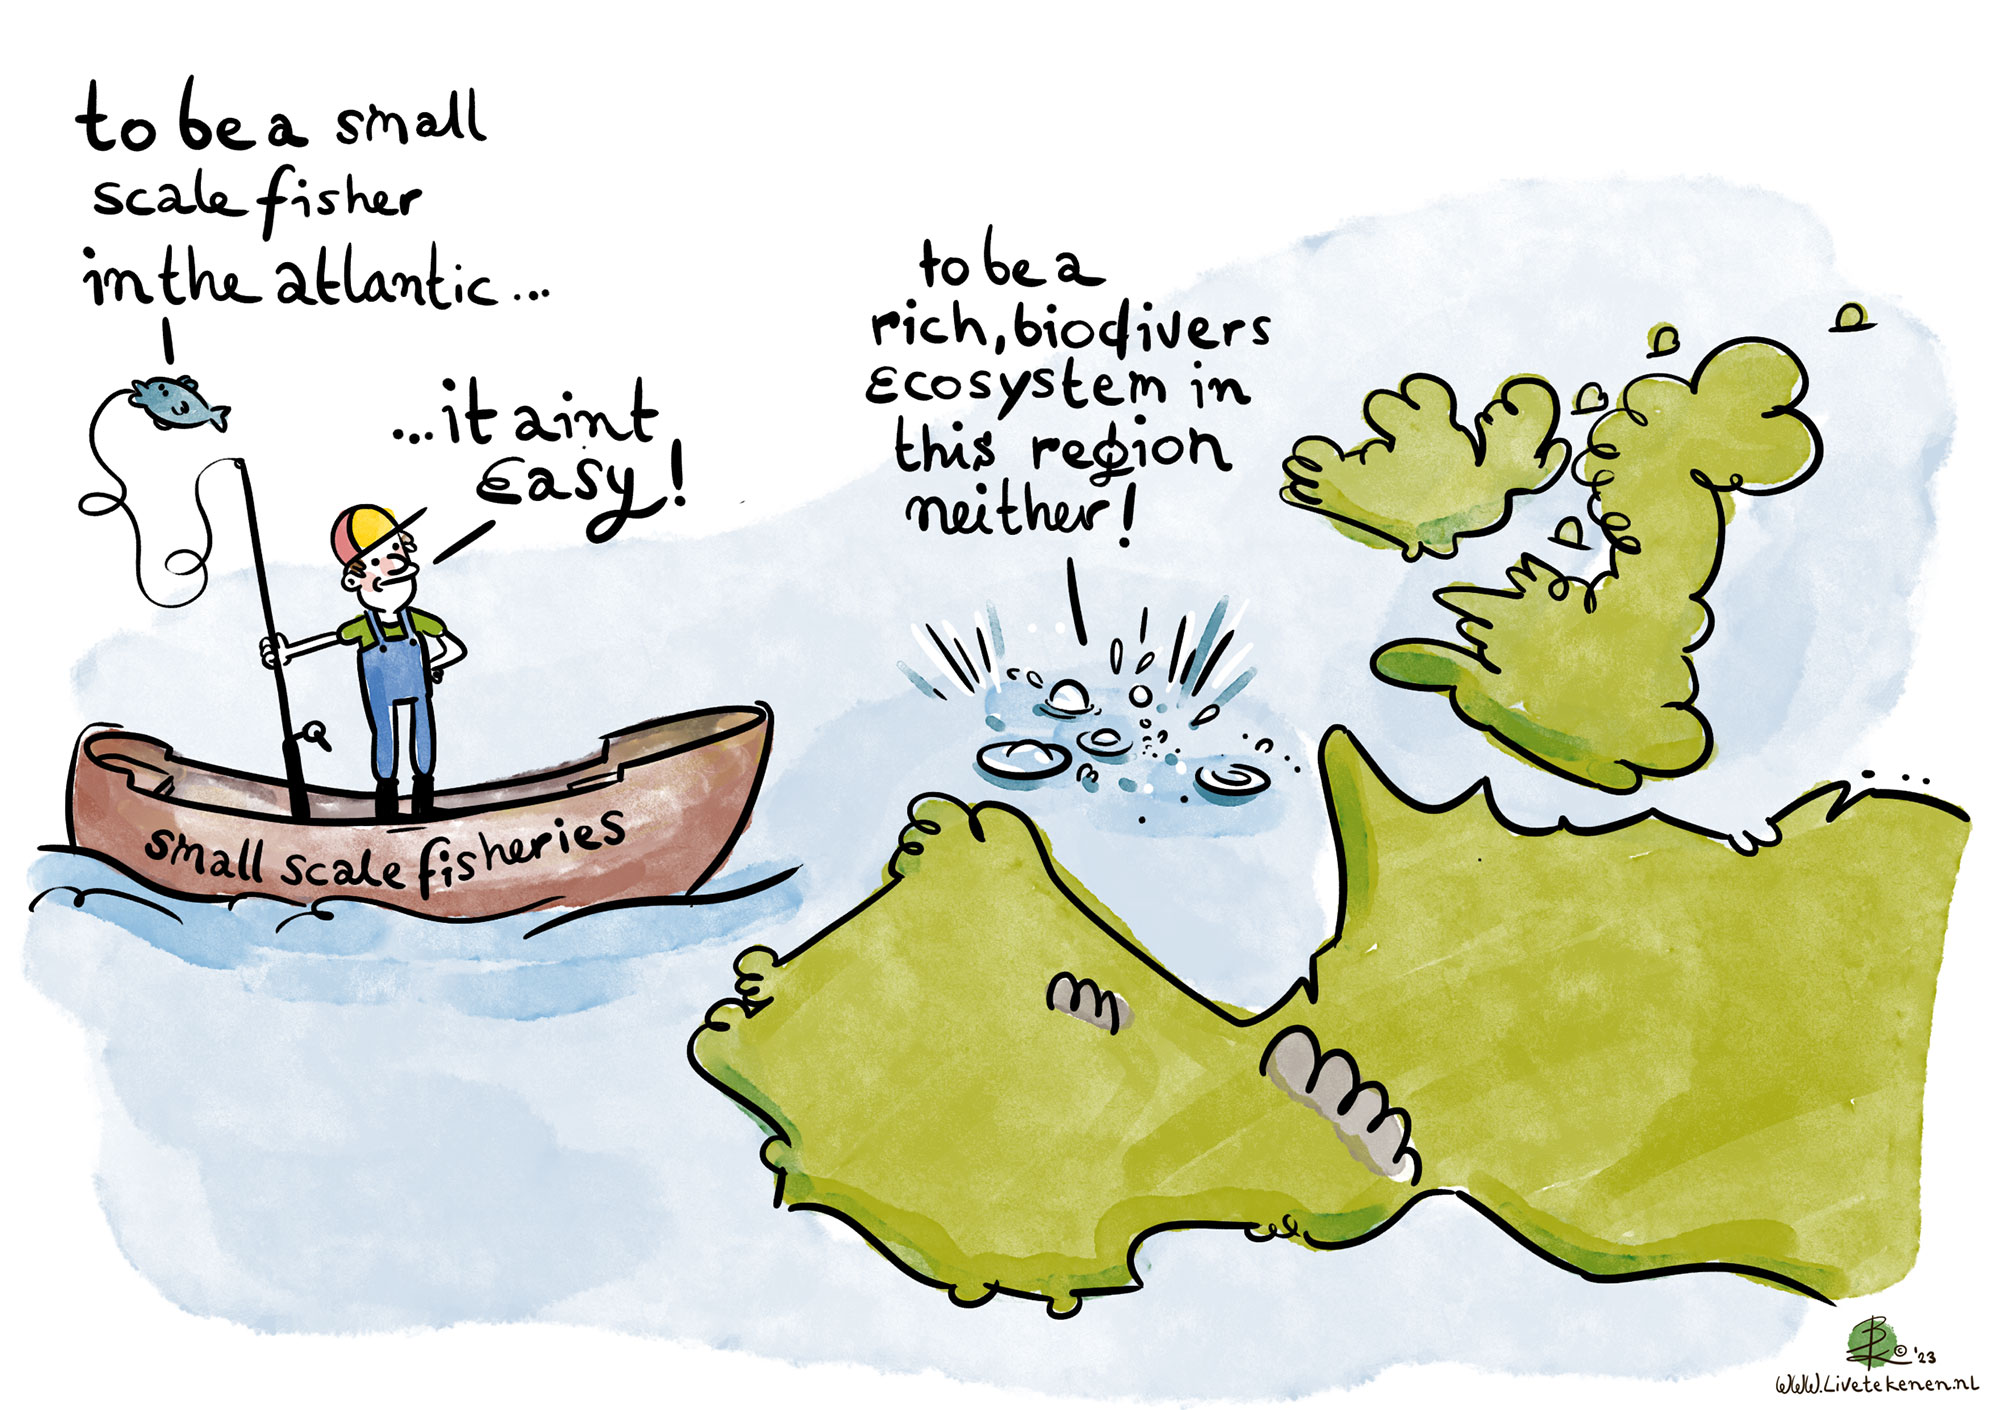 to be a small
scale fisher
in the atlantic...
...it aint
easy!
to be a
rich, biodivers
ecosystem in
this region
neither!
small scale fisheries
BK © '23
www.Livetekenen.nl